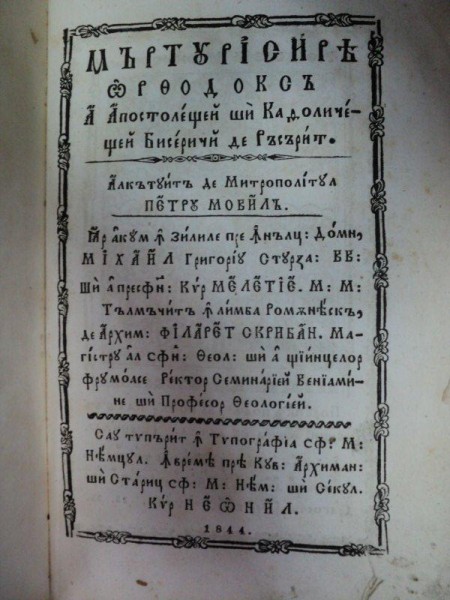 МѢРТѸРІСИ́РѢ
Ѡ҆РѲОДОКСЪ
А҆ А҆постоле́щей шѝ Каѳоличе́-
щей Бисе́ричй де Ръсъри́т.
А҆лкътуи́тъ де Митрополи́тул
ПЕ́ТРУ МОВИ́ЛЪ.
Ꙗ҆р а҆кум ꙟ҆ зи́лиле пре ꙟ҆нълц: До́мн,
МІХАИ́Л Григоріу Стурза: ВВ:
Шѝ а҆ пресфи҃: Ку́р МЕЛЕ́ТІЕ. М: М:
Тълмъчи́тъ ꙟ҆ ли́мба Ромѫнѣ́скъ,
де Архим: ФІЛАРЕ́Т СКРИБА́Н. Ма-
гі́стру а҆л сфи҃: Ѳеол: шѝ а҆л щіи́нцелор
фрумо́асе Ре́ктор Семина́ріей Веніамі́-
не шѝ Профе́сор Ѳеологі́ей.
Сау тупъри́т ꙟ҆ Тѵпогра́фіа сф: М:
Нѣ́мцул. ꙟ҆вре́мѣ прѣ Кув: А҆рхиман:
шѝ Ста́риц сф: М: Нѣ́м: шѝ Се́кул.
Ку́р НЕѠНИ́Л.
1844.